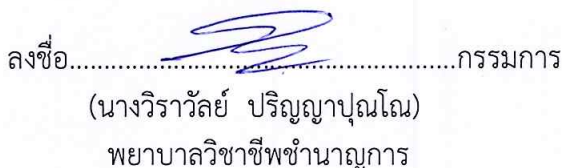 ลงชื่อ............................................................กรรมการ
(นางวิราวัลย์ ปริญญาปุณโณ)
พยาบาลวิชาชีพชำนาญการ